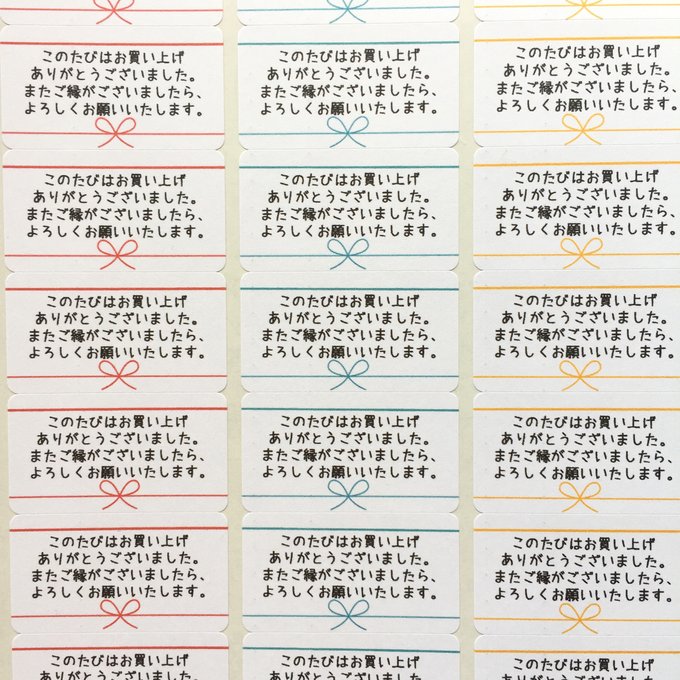 このたびはお買い上げ
ありがとうございました。
またご縁がございましたら、
よろしくお願いいたします。
このたびはお買い上げ
ありがとうございました。
またご縁がございましたら、
よろしくお願いいたします。
このたびはお買い上げ
ありがとうございました。
またご縁がございましたら、
よろしくお願いいたします。
このたびはお買い上げ
ありがとうございました。
またご縁がございましたら、
よろしくお願いいたします。
このたびはお買い上げ
ありがとうございました。
またご縁がございましたら、
よろしくお願いいたします。
このたびはお買い上げ
ありがとうございました。
またご縁がございましたら、
よろしくお願いいたします。
このたびはお買い上げ
ありがとうございました。
またご縁がございましたら、
よろしくお願いいたします。
このたびはお買い上げ
ありがとうございました。
またご縁がございましたら、
よろしくお願いいたします。
このたびはお買い上げ
ありがとうございました。
またご縁がございましたら、
よろしくお願いいたします。
このたびはお買い上げ
ありがとうございました。
またご縁がございましたら、
よろしくお願いいたします。
このたびはお買い上げ
ありがとうございました。
またご縁がございましたら、
よろしくお願いいたします。
このたびはお買い上げ
ありがとうございました。
またご縁がございましたら、
よろしくお願いいたします。
このたびはお買い上げ
ありがとうございました。
またご縁がございましたら、
よろしくお願いいたします。
このたびはお買い上げ
ありがとうございました。
またご縁がございましたら、
よろしくお願いいたします。
このたびはお買い上げ
ありがとうございました。
またご縁がございましたら、
よろしくお願いいたします。
このたびはお買い上げ
このたびはお買い上げ
このたびはお買い上げ